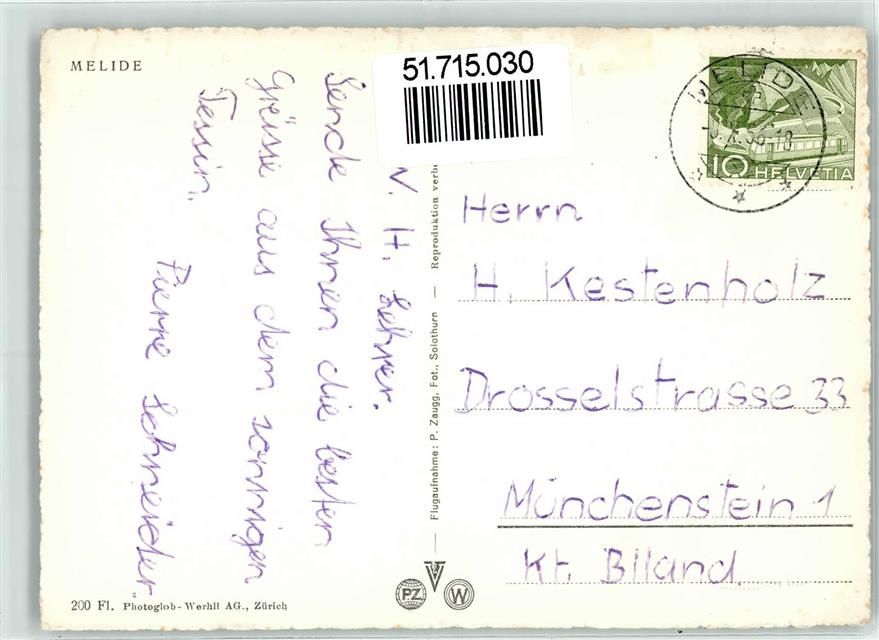 MELIDE
51.715.030
V. H. Lehrer.
Sende Ihnen die besten
Grüsse aus dem sonnigen
Tessin.
Pierre Schneider
Flugaufnahme: P. Zaugg, Fot., Solothurn — Reproduktion verbo
MELIDE
10 HELVETIA
Herrn
H. Kestenholz
Drosselstrasse 33
Münchenstein 1
Kt. Blland.
PZ
W
200 Fl. Photoglob-Werhli AG., Zürich